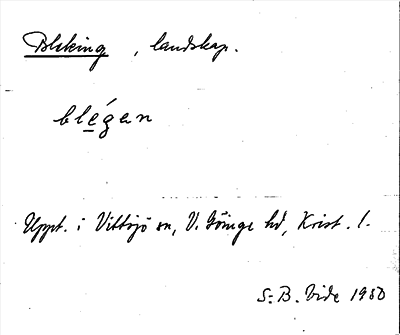 Bleking, landskap.
blégen
Uppt. i Vittsjö sn, V. Göinge hd, Krist. l.
S: B. Vide 1950